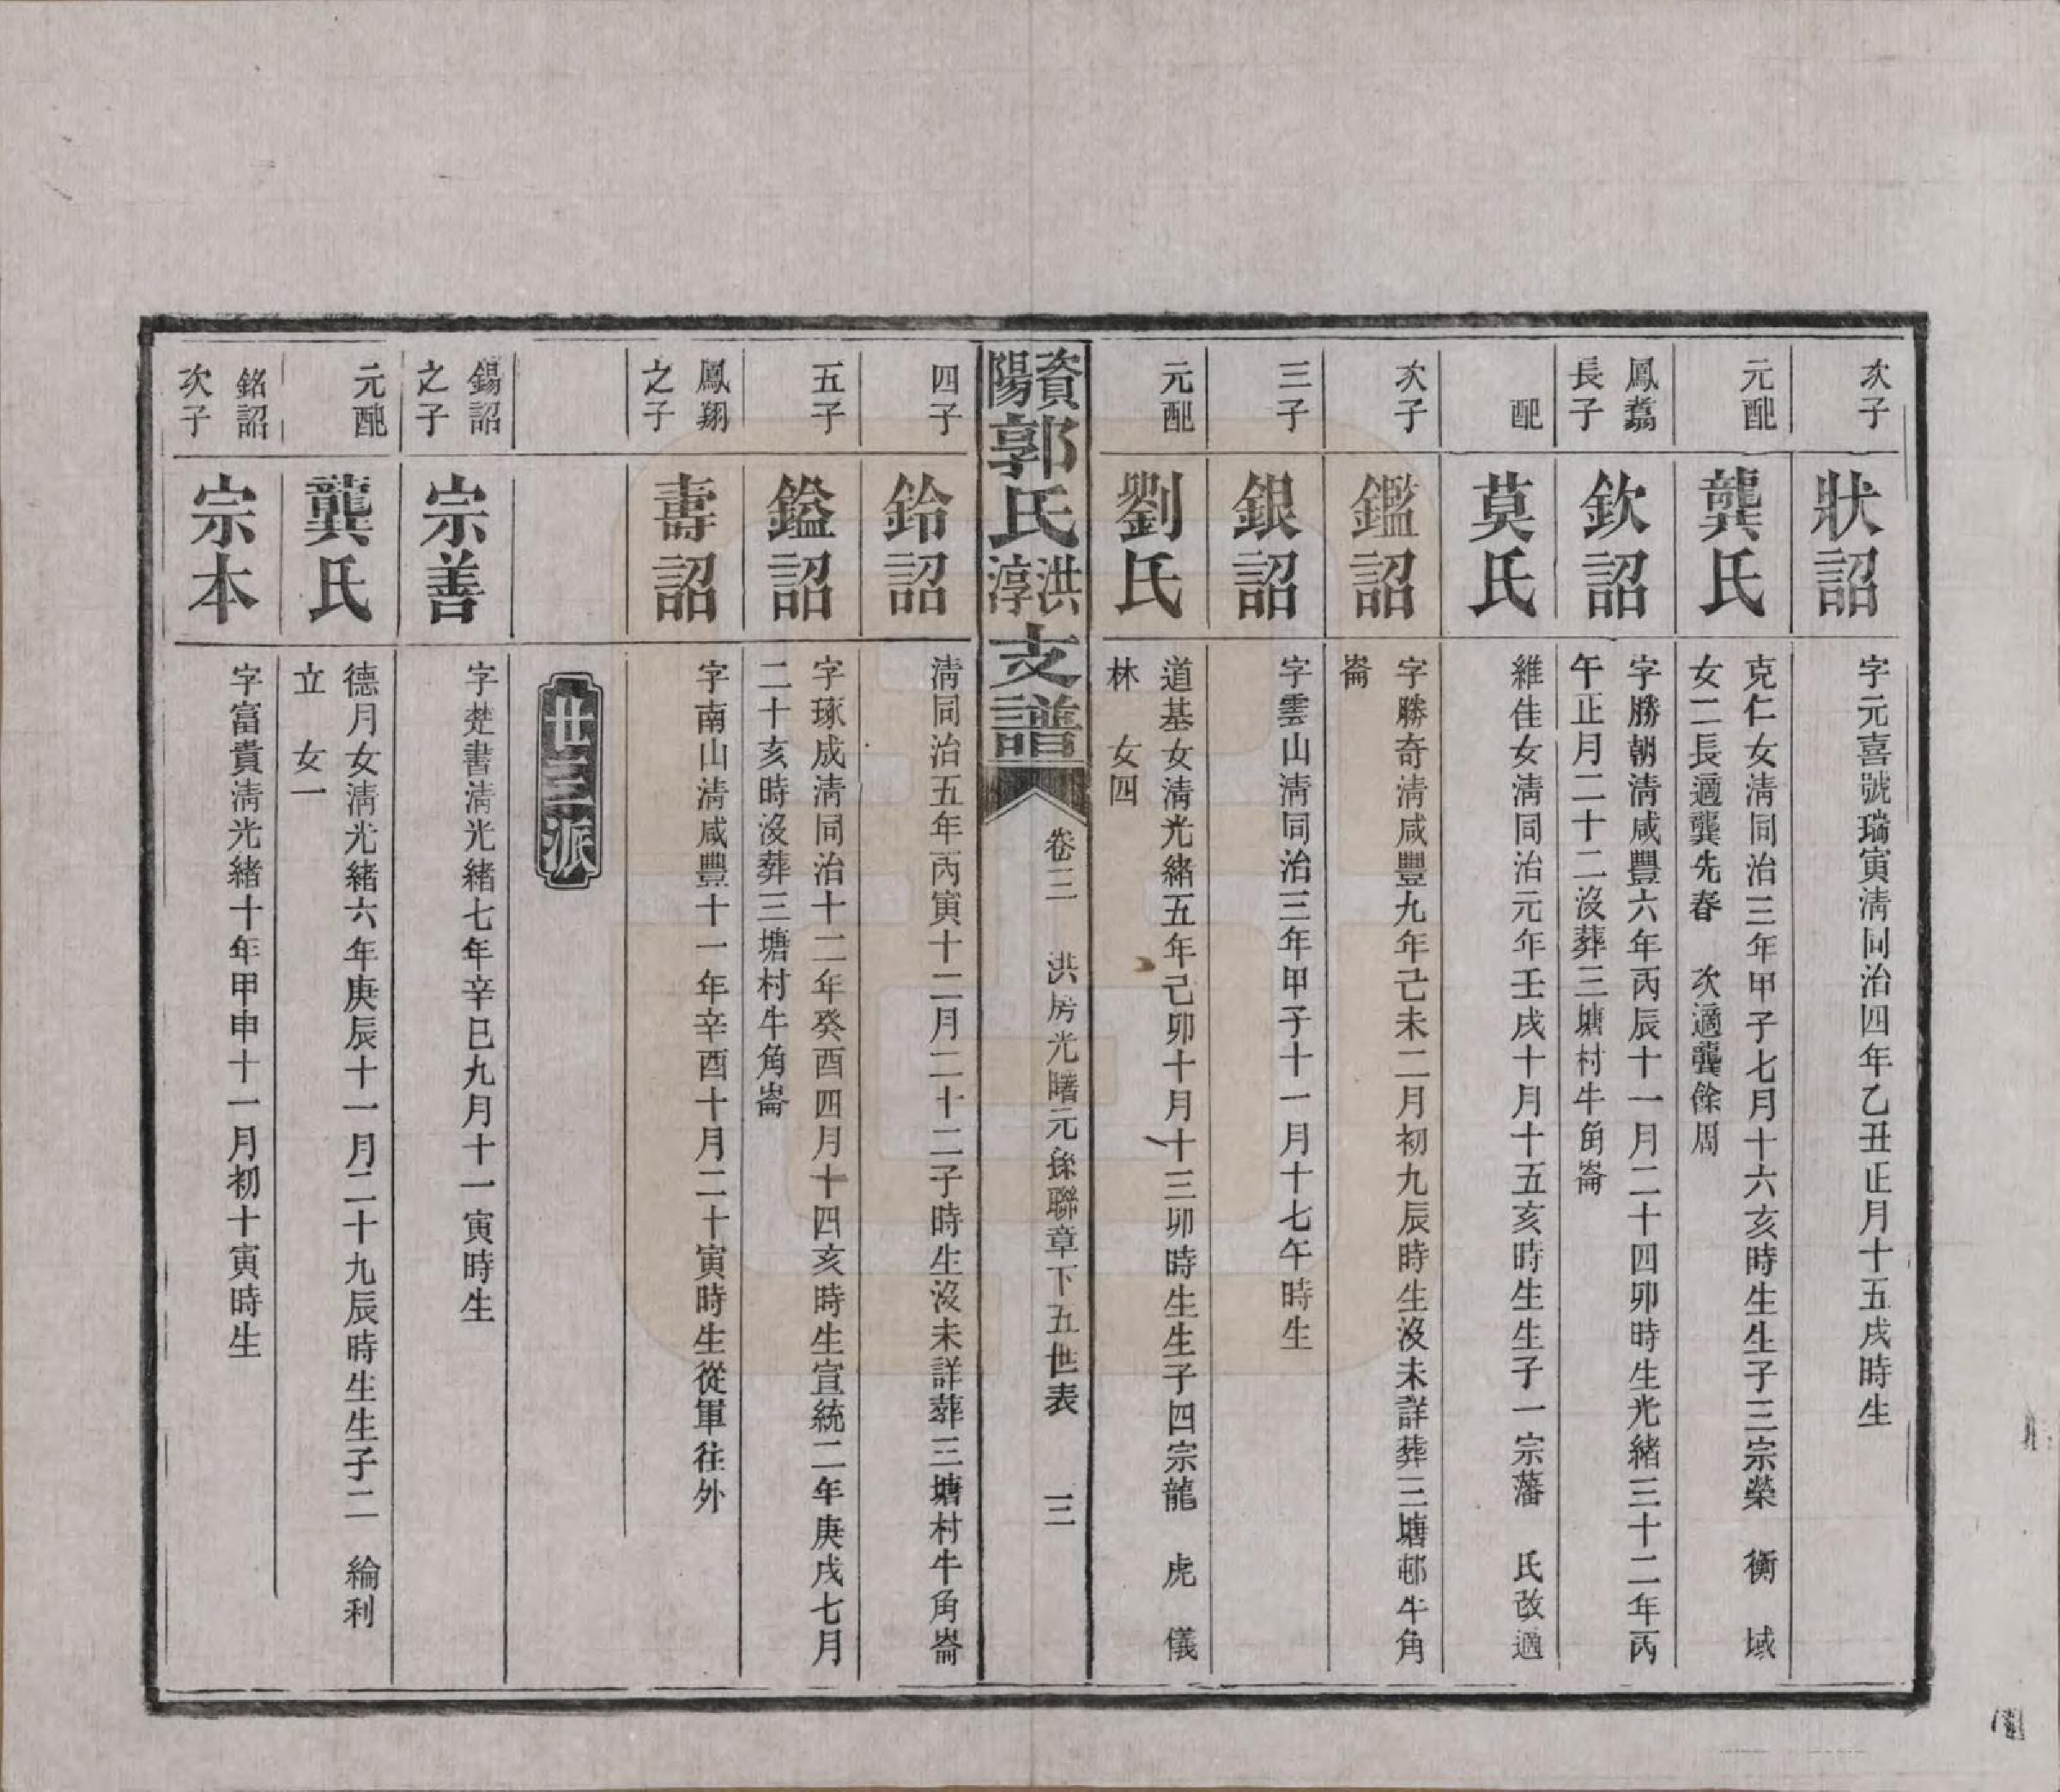 次子
狀詔
字元喜號瑞寅淸同治四年乙丑正月十五戌時生
元配
龔氏
克仁女淸同治三年甲子七月十六亥時生生子三宗榮　衡　域
女二長適龔先春　次適龔餘周
鳳翥
長子
欽詔
字勝朝淸咸豐六年丙辰十一月二十四卯時生光緒三十二年丙
午正月二十二沒葬三塘村牛角崙
配
莫氏
維佳女淸同治元年壬戌十月十五亥時生生子一宗藩　氏改適
次子
鑑詔
字勝奇淸咸豐九年己未二月初九辰時生沒未詳葬三塘邨牛角
崙
三子
銀詔
字雲山淸同治三年甲子十一月十七午時生
元配
劉氏
道基女淸光緒五年己卯十月十三卯時生生子四宗龍　虎　儀
林　女四
資陽郭氏洪淳支譜
卷三　洪房光曙元孫聯章下五世表　三
四子
鈴詔
淸同治五年丙寅十二月二十二子時生沒未詳葬三塘村牛角崙
五子
鎰詔
字琢成淸同治十二年癸酉四月十四亥時生宣統二年庚戌七月
二十亥時沒葬三塘村牛角崙
鳳翔
之子
壽詔
字南山淸咸豐十一年辛酉十月二十寅時生從軍往外
卅三派
錫詔
之子
宗善
字楚書淸光緒七年辛巳九月十一寅時生
元配
龔氏
德月女淸光緒六年庚辰十一月二十九辰時生生子二　綸利
立　女一
銘詔
次子
宗本
字富貴淸光緒十年甲申十一月初十寅時生